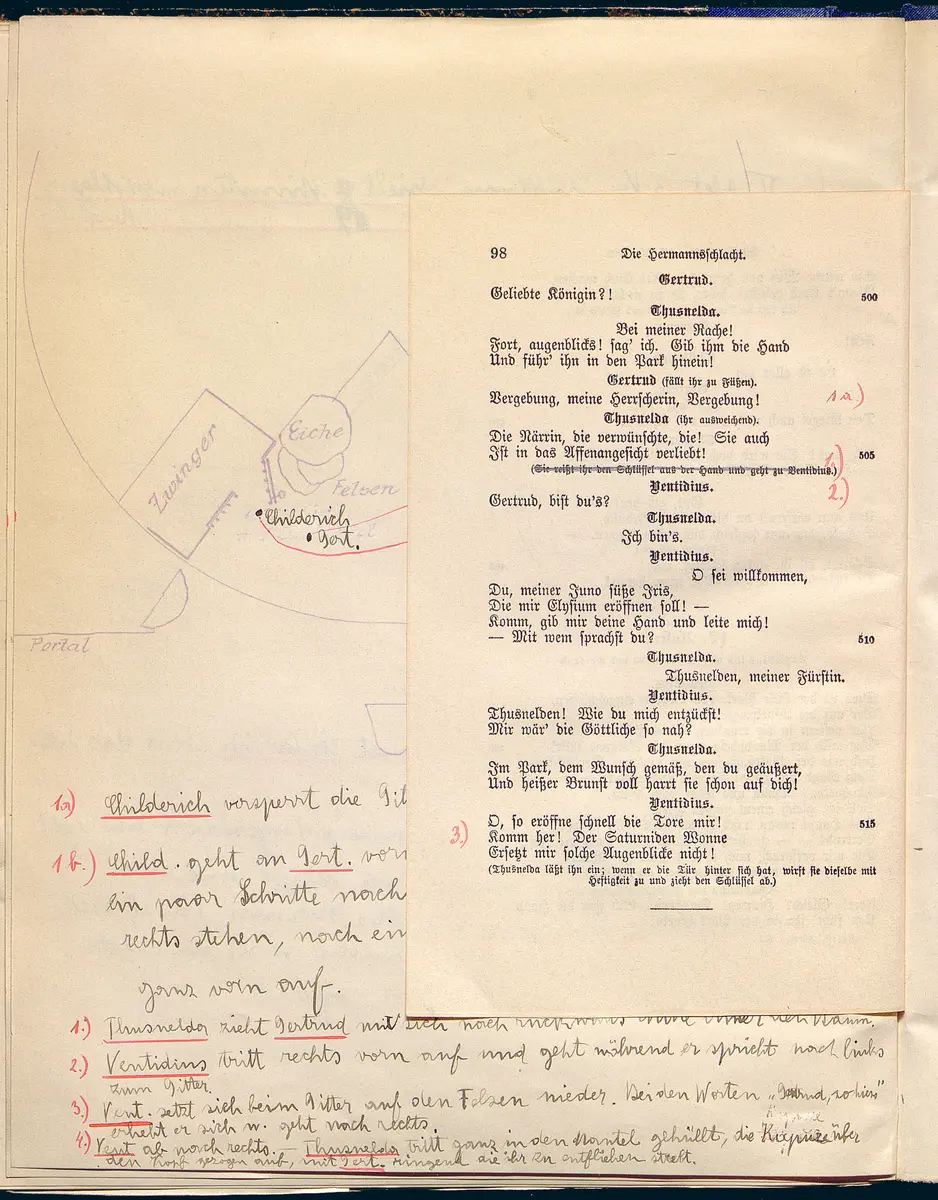 98 Die Hermannsschlacht.
Gertrud.
Geliebte Königin?! 500
Thusnelda.
Bei meiner Rache!
Fort, augenblicks! sag' ich. Gib ihm die Hand
Und führ' ihn in den Park hinein!
Gertrud (fällt ihr zu Füßen).
Vergebung, meine Herrscherin, Vergebung! 1a.)
Thusnelda (ihr ausweichend).
Die Närrin, die verwünschte, die! Sie auch
Ist in das Affenangesicht verliebt! 505
(Sie reißt ihr den Schlüssel aus der Hand und geht zu Ventidius.) 1.)
Ventidius. 2.)
Gertrud, bist du's?
Thusnelda.
Ich bin's.
Ventidius.
O sei willkommen,
Du, meiner Juno süße Iris,
Die mir Elysium eröffnen soll! —
Komm, gib mir deine Hand und leite mich!
— Mit wem sprachst du? 510
Thusnelda.
Thusnelden, meiner Fürstin.
Ventidius.
Thusnelden! Wie du mich entzückst!
Mir wär' die Göttliche so nah?
Thusnelda.
Im Park, dem Wunsch gemäß, den du geäußert,
Und heißer Brunst voll harrt sie schon auf dich!
Ventidius.
O, so eröffne schnell die Tore mir! 515
3.) Komm her! Der Saturniden Wonne
Ersetzt mir solche Augenblicke nicht!
(Thusnelda läßt ihn ein; wenn er die Tür hinter sich hat, wirft sie dieselbe mit
Heftigkeit zu und zieht den Schlüssel ab.)
Zwinger
Eiche
Felsen
Childerich
Gert.
Portal
1a) Childerich versperrt die Git
1b.) Child. geht an Gert. vor
ein paar Schritte nach
rechts stehen, noch ein
ganz vorn auf.
1.) Thusnelda zieht Gertrud mit sich nach rückwärts
2.) Ventidius tritt rechts vorn auf und geht während er spricht nach links
zum Gitter.
3.) Vent. setzt sich beim Gitter auf den Felsen nieder. Bei den Worten
erhebt er sich u. geht nach rechts.
4.) Vent ab nach rechts. Thusnelda tritt ganz in den Mantel gehüllt, die Kapuze über
den Kopf gezogen auf, mit Gert. ringend die ihr zu entfliehen strebt.